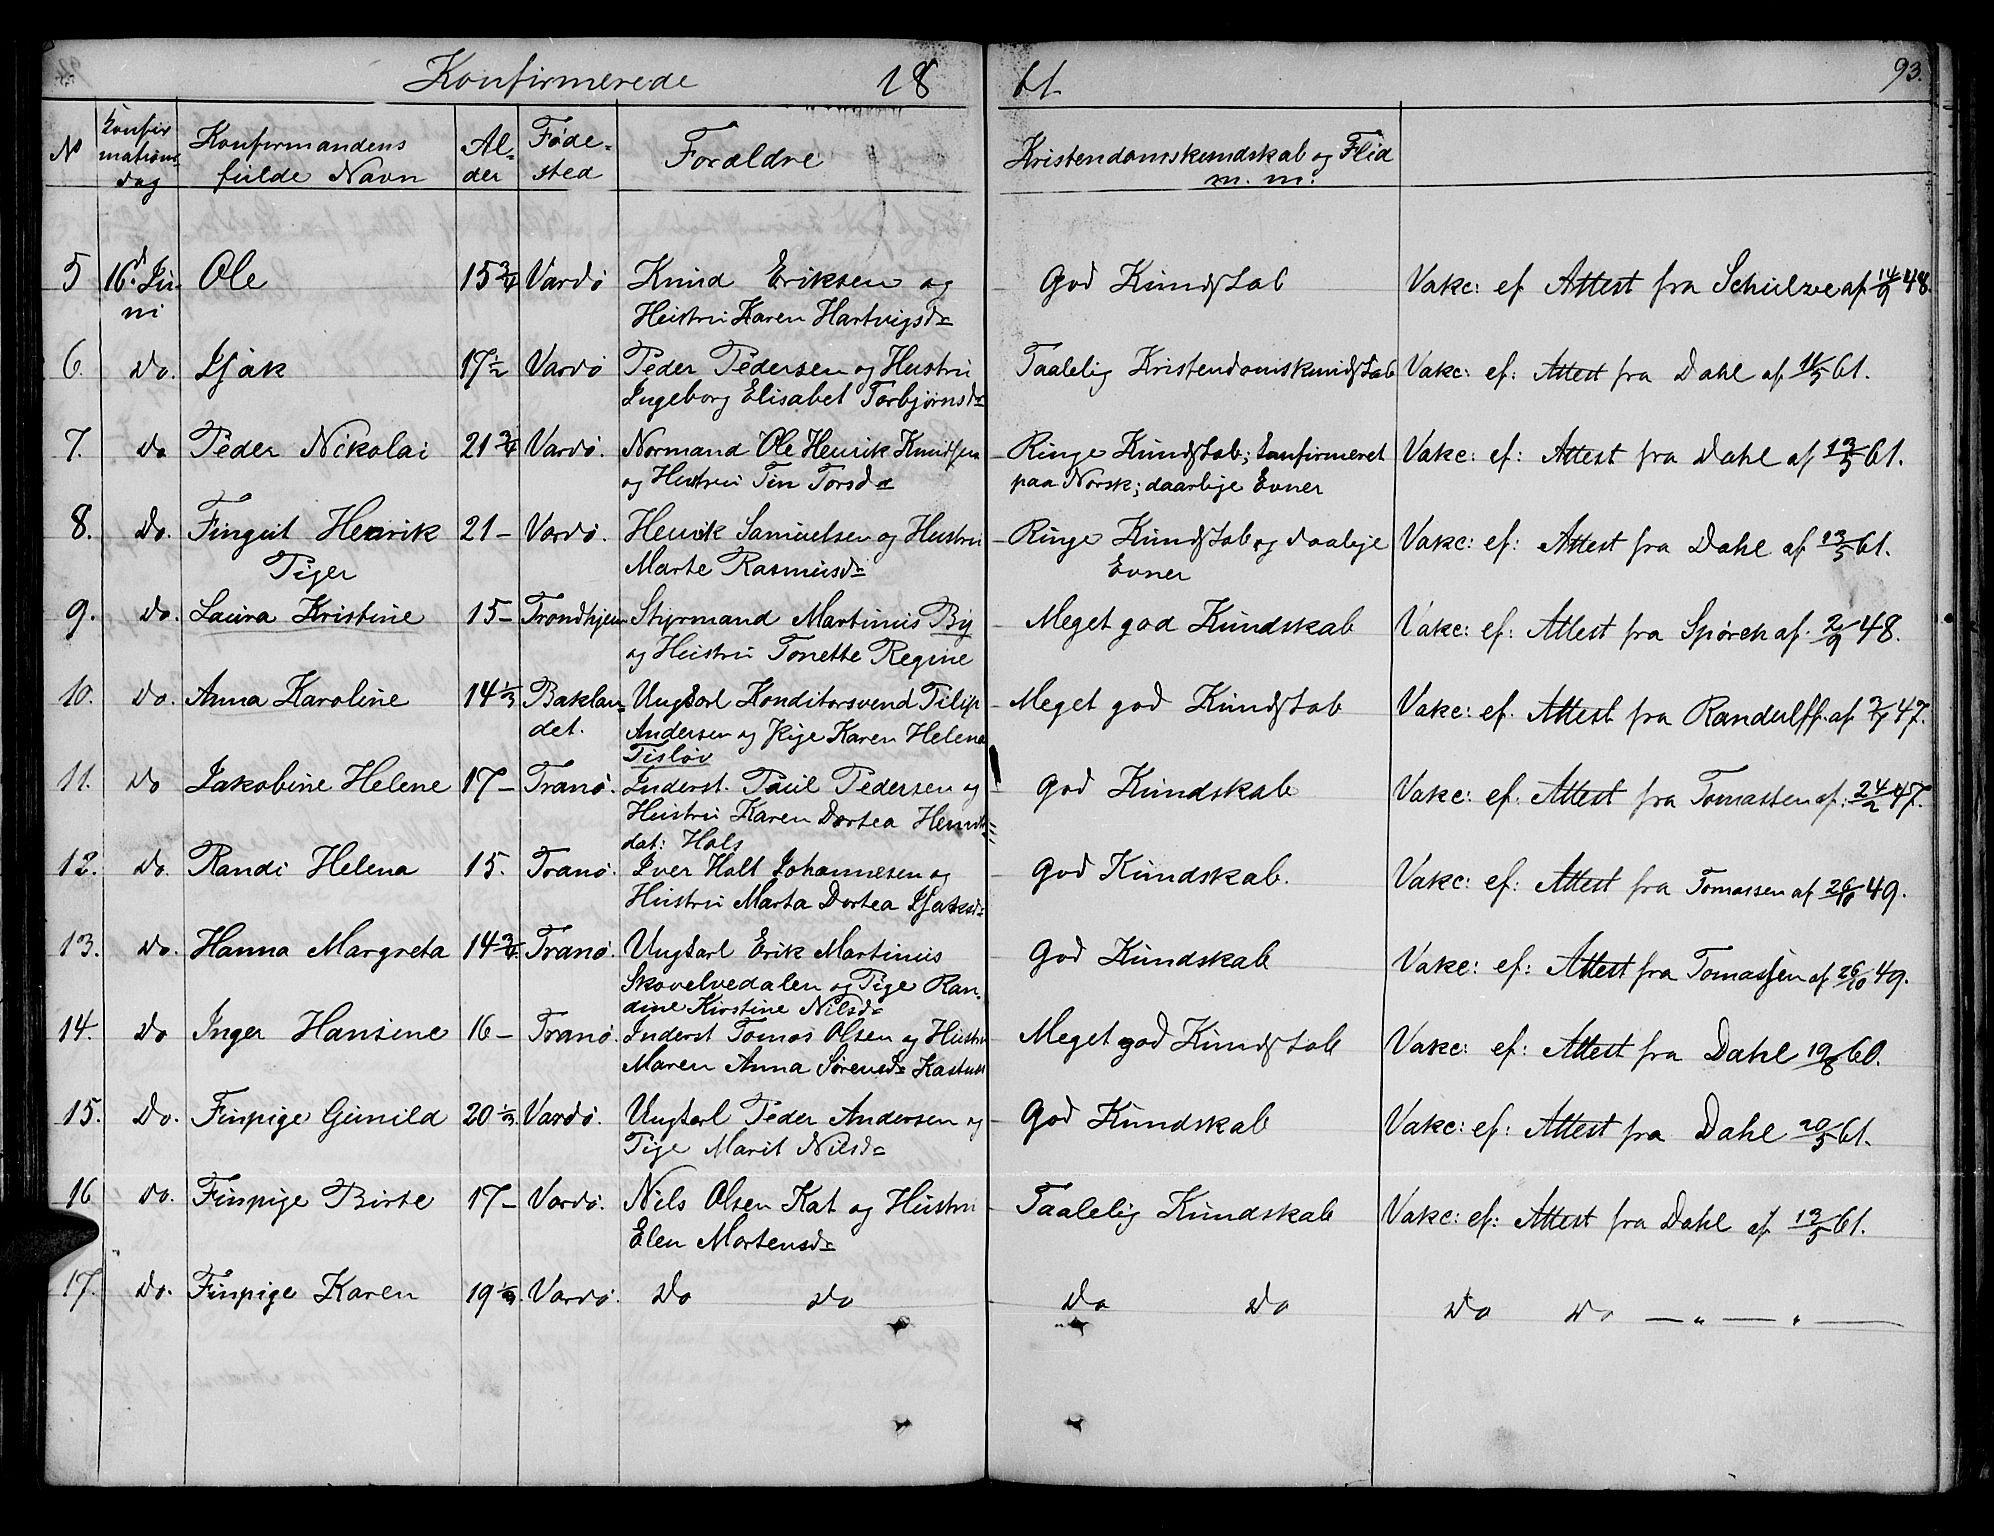 Konfirmerede 18 61. 93.
N Konfirmations dag Konfirmandens fulde Navn Alder Fødested Forældre Kristendomskundskab og Flid m. m.
5 16d Ju- Ole 15 3/4 Vardø Knud Eriksen og God Kundskab Vakc: ef. Attest fra Schulze af 14/9 48.
ni Hustru Karen Hartvigsdr
6. Do. Isak 17 1/2 Vardø Peder Pedersen og Hustru Taalelig Kristendomskundskab Vakc: ef: Attest fra Dahl af 11/5 61.
Ingeborg Elisabet Torbjørnsdr
7. Do Peder Nikolai 21 3/4 Vardø. Normand Ole Henrik Knudsen Ringe Kundskab; konfirmeret Vakc: ef: Attest fra Dahl af 13/5 61.
og Hustru Tin Torsdr paa Norsk; daarlige Evner
8. Do. Fingut Henrik 21 – Vardø. Henrik Samuelsen og Hustru Ringe Kundskab og daalige Vakc: ef: Attest fra Dahl af 13/5 61.
Piger Marte Rasmusdr Evner
9. Do. Laura Kristine 15 – Trondhjem Styrmand Martinus By Meget god Kundskab Vakc: ef: Attest fra Spørck af 2/9 48.
og Hustru Tonette Regine
10. Do. Anna Karoline 14 1/3 Baklan- Ungkarl Konditorsvend Filip Meget god Kundskab Vakc: ef. Attest fra Randulff af 2/7 47.
det. Andersen og Pige Karen Helena
Tisløv
11. Do Jakobine Helene 17 – Tranø. Inderst. Paul Pedersen og God Kundskab Vakc: ef. Attest fra Tomassen af: 24/2 47.
Hustru Karen Dortea Henriks
dat: Hals
12. Do. Randi Helena 15. Tranø. Iver Holt Johannesen og God Kundskab. Vakc: ef: Attest fra Tomassen af 26/10 49.
Hustru Marta Dortea Isaksdr
13. Do. Hanna Margreta 14 3/4 Tranø. Ungkarl Erik Martinus God Kundskab Vakc: ef: Attest fra Tomassen af 26/10 49.
Skovelvedalen og Pige Ran-
dine Kirstine Nilsdr
14. Do Inger Hansine 16 – Tranø. Inderst Tomas Olsen og Hustru Meget god Kundskab Vakc: ef: Attest fra Dahl 19/8 60.
Maren Anna Sørensdr
15. Do. Finpige Gunild 20 1/3 Vardø. Ungkarl Peder Andersen og God Kundskab Vakc: ef: Attest fra Dahl 20/5 61.
Pige Marit Nilsdr
16 Do. Finpige Birte 17 – Vardø. Nils Olsen Kat og Hustru Taalelig Kundskab Vakc: ef: Attest fra Dahl af 13/5 61.
Elen Mortensdr
17. Do. Finpige Karen 19 1/3 Vardø. Do Do Do Do Do Do — " — " —